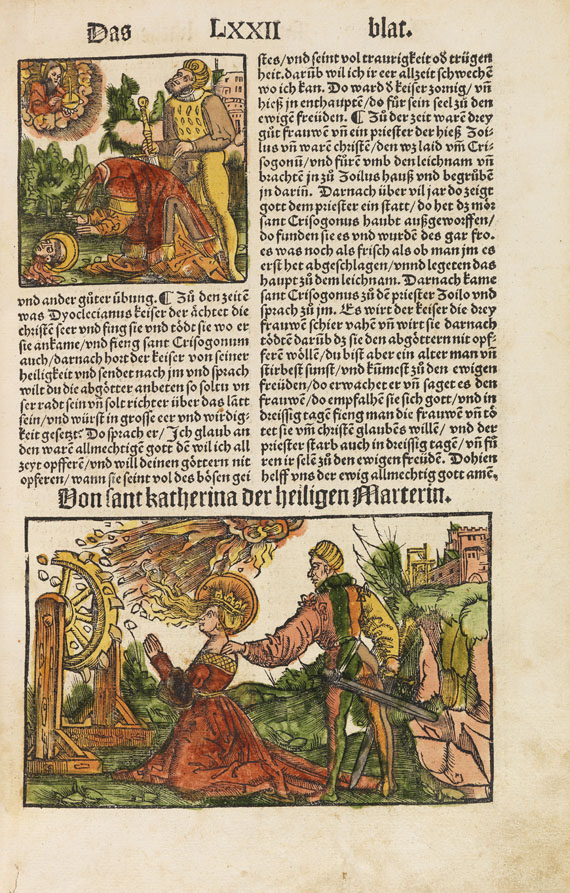 Das LXXII blat.
vnd ander gůter übung. ¶ Zů den zeitē
was Dyoclecianus keiser der ächtet die
christēn seer vnd fing sie vnd tödt sie wo er
sie ankame/vnd fieng sant Crisogonum
auch/darnach hort der keiser von seiner
heiligkeit vnd sendet nach jm vnd sprach
wilt du die abgötter anbeten so soltu vn
ser radt sein vn̄ solt richter über das lātt
sein/vnd würst in grosse eer vnd wirdig-
keit gesetzt. Do sprach er/Ich glaub an
den warē allmechtigē gott dē wil ich all
zeyt opfferē/vnd will deinen göttern nit
opferen/wann sie seint vol des bösen gei
stes/vnd seint vol traurigkeit od̄ trügen
heit.darūb wil ich ir eer allzeit schwechē
wo ich kan. Do ward d̄ keiser zornig/vn̄
hieß jn enthauptē/do fůr sein seel zů den
ewigē freüden. ¶ Zů der zeit warē drey
gůt frauwē vn̄ ein priester der hieß Zoi-
lus vn̄ warē christē/den wz laid vm̄ Cri-
sogonū/vnd fůrē vmb den leichnam vn̄
brachtē jn zů Zoilus hauß vnd begrůbē
jn darin̄. Darnach über vil jar do zeigt
gott dem priester ein statt/do het dz mör
sant Crisogonus haubt außgeworffen/
do funden sie es vnd wurdē des gar fro.
es was noch als frisch als ob man jm es
erst het abgeschlagen/vnnd legeten das
haupt zů dem leichnam. Darnach kame
sant Crisogonus zů dē priester Zoilo vnd
sprach zů jm. Es wirt der keiser die drey
frauwen schier vahē vn̄ wirt sie darnach
tödtēn darūb dz sie den abgöttern nit opf-
ferē wöllē/du bist aber ein alter man vn̄
stirbest sunst/vnd kümest zů den ewigen
freüden/do erwachet er vn̄ saget es den
frauwē/do empfalhē sie sich gott/vnd in
dreissig tagē fieng man die frauwē vn̄ tö
tet sie vm̄ christē glaubēs willē/ vnd der
priester starb auch in dreissig tagē/vn̄ fů
ren ir selē zů den ewigen freüdē. Do hien
helff vns der ewig allmechtig gott amē.
Von sant katherina der heiligen Marterin.